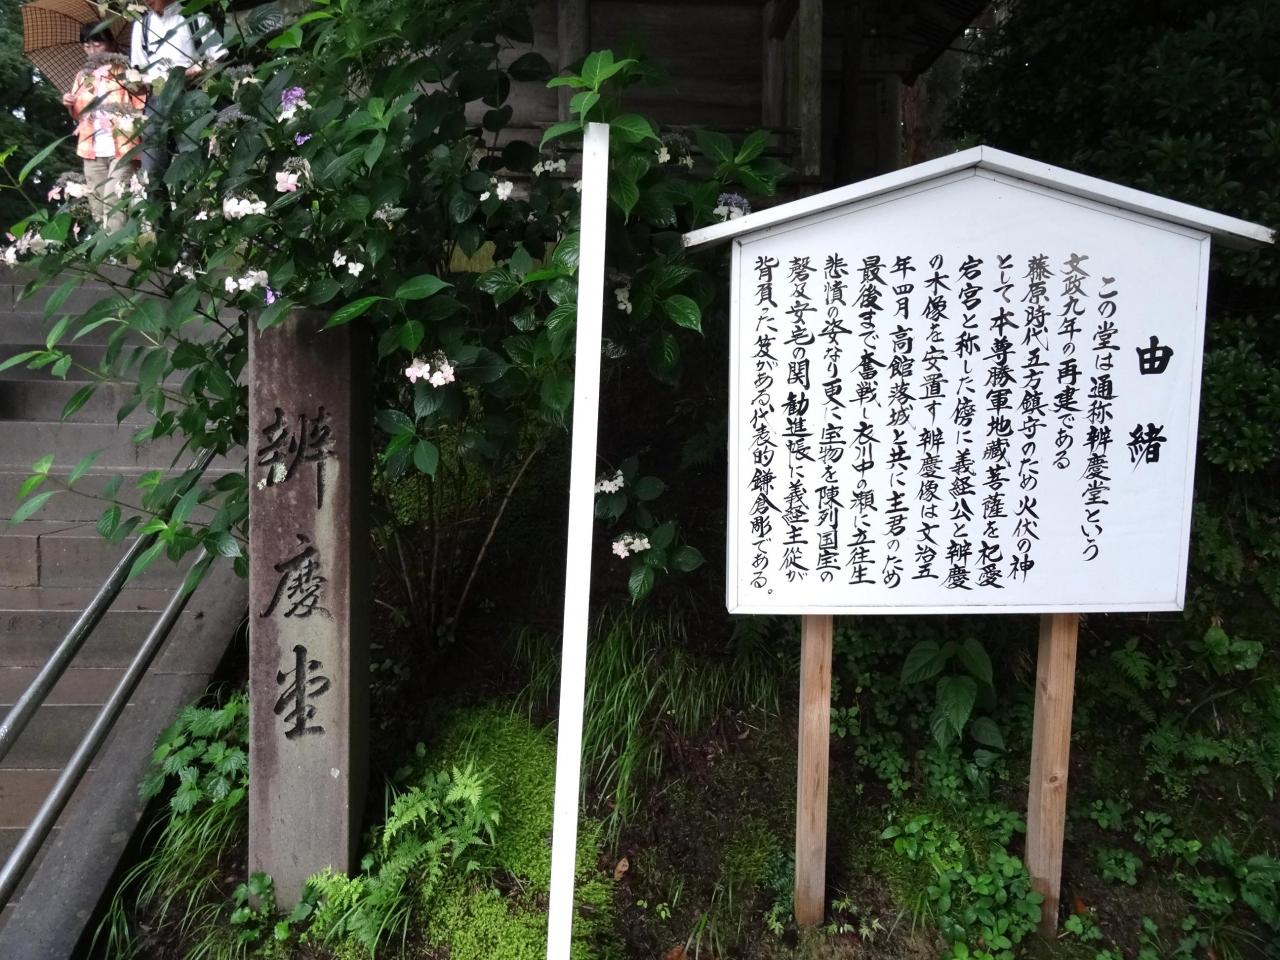 辨慶堂
由緒
この堂は通称辨慶堂という
文政九年の再建である
藤原時代五方鎮守のため火伏の神
として本尊勝軍地蔵菩薩を祀愛
宕宮と称した傍に義経公と辨慶
の木像を安置す辨慶像は文治五
年四月高館落城と共に主君のため
最後まで奮戦し衣川中の瀬に立往生
悲憤の姿なり更に宝物を陳列国宝の
磬及安宅の関勧進帳に義経主従が
背負った笈がある代表的鎌倉彫である。